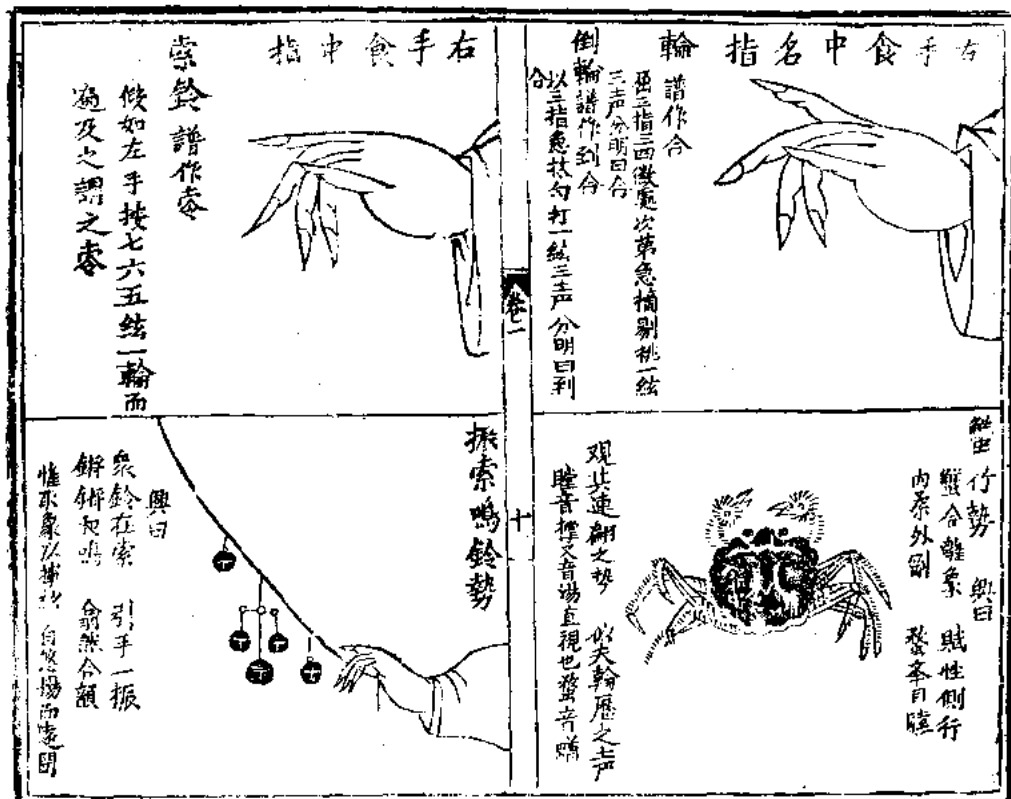 右手食中名指
輪 譜作合
屈三指三四徽處次第急摘剔挑一絃
三声分明曰合
倒輪譜作到合
以三指急抹勾打一絃三声分明曰到
合
蟹行勢 興曰
蟹合離象 賦性側行
內柔外剛 螯牽目瞠
观其連翩之勢 似夫輪歷之声
瞠音撑又音湯直視也螯音
卷一
十
右手食中指
索鈴 譜作
假如左手按七六五絃一輪而
遍及之謂之
振索鳴鈴勢
興曰
衆鈴在索 引手一振
鏘鏘和鳴 翕然合韻
惟取象以 自悠揚而遠聞